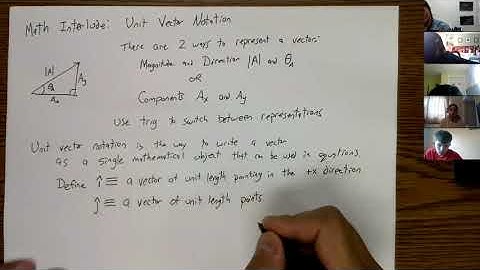 Math Interlude: Unit Vector Notation
There are 2 ways to represent a vector:
Magnitude and Direction |A| and θA
OR
Components Ax and Ay
|A|
Ay
θA
Ax
Use trig to switch between representations
Unit vector notation is the way to write a vector
as a single mathematical object that can be used in equations.
Define î ≡ a vector of unit length pointing in the +x direction
ĵ ≡ a vector of unit length points